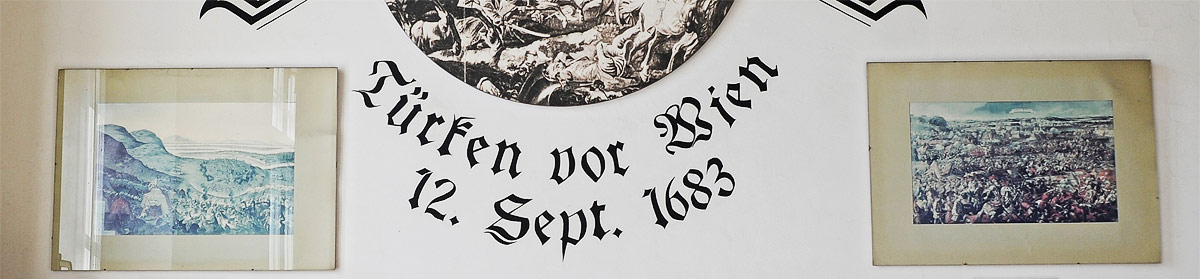 Türken vor Wien
12. Sept. 1683